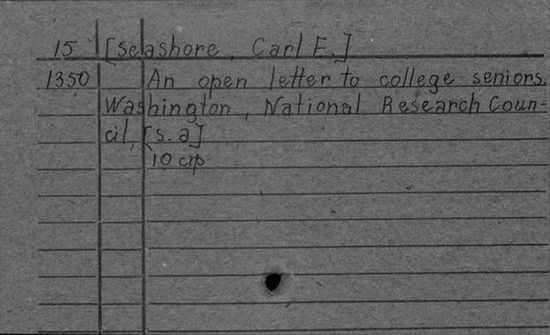 15 [Seashore, Carl E.]
1350 An open letter to college seniors.
Washington, National Research Coun-
cil, [s.a]
10 c/p